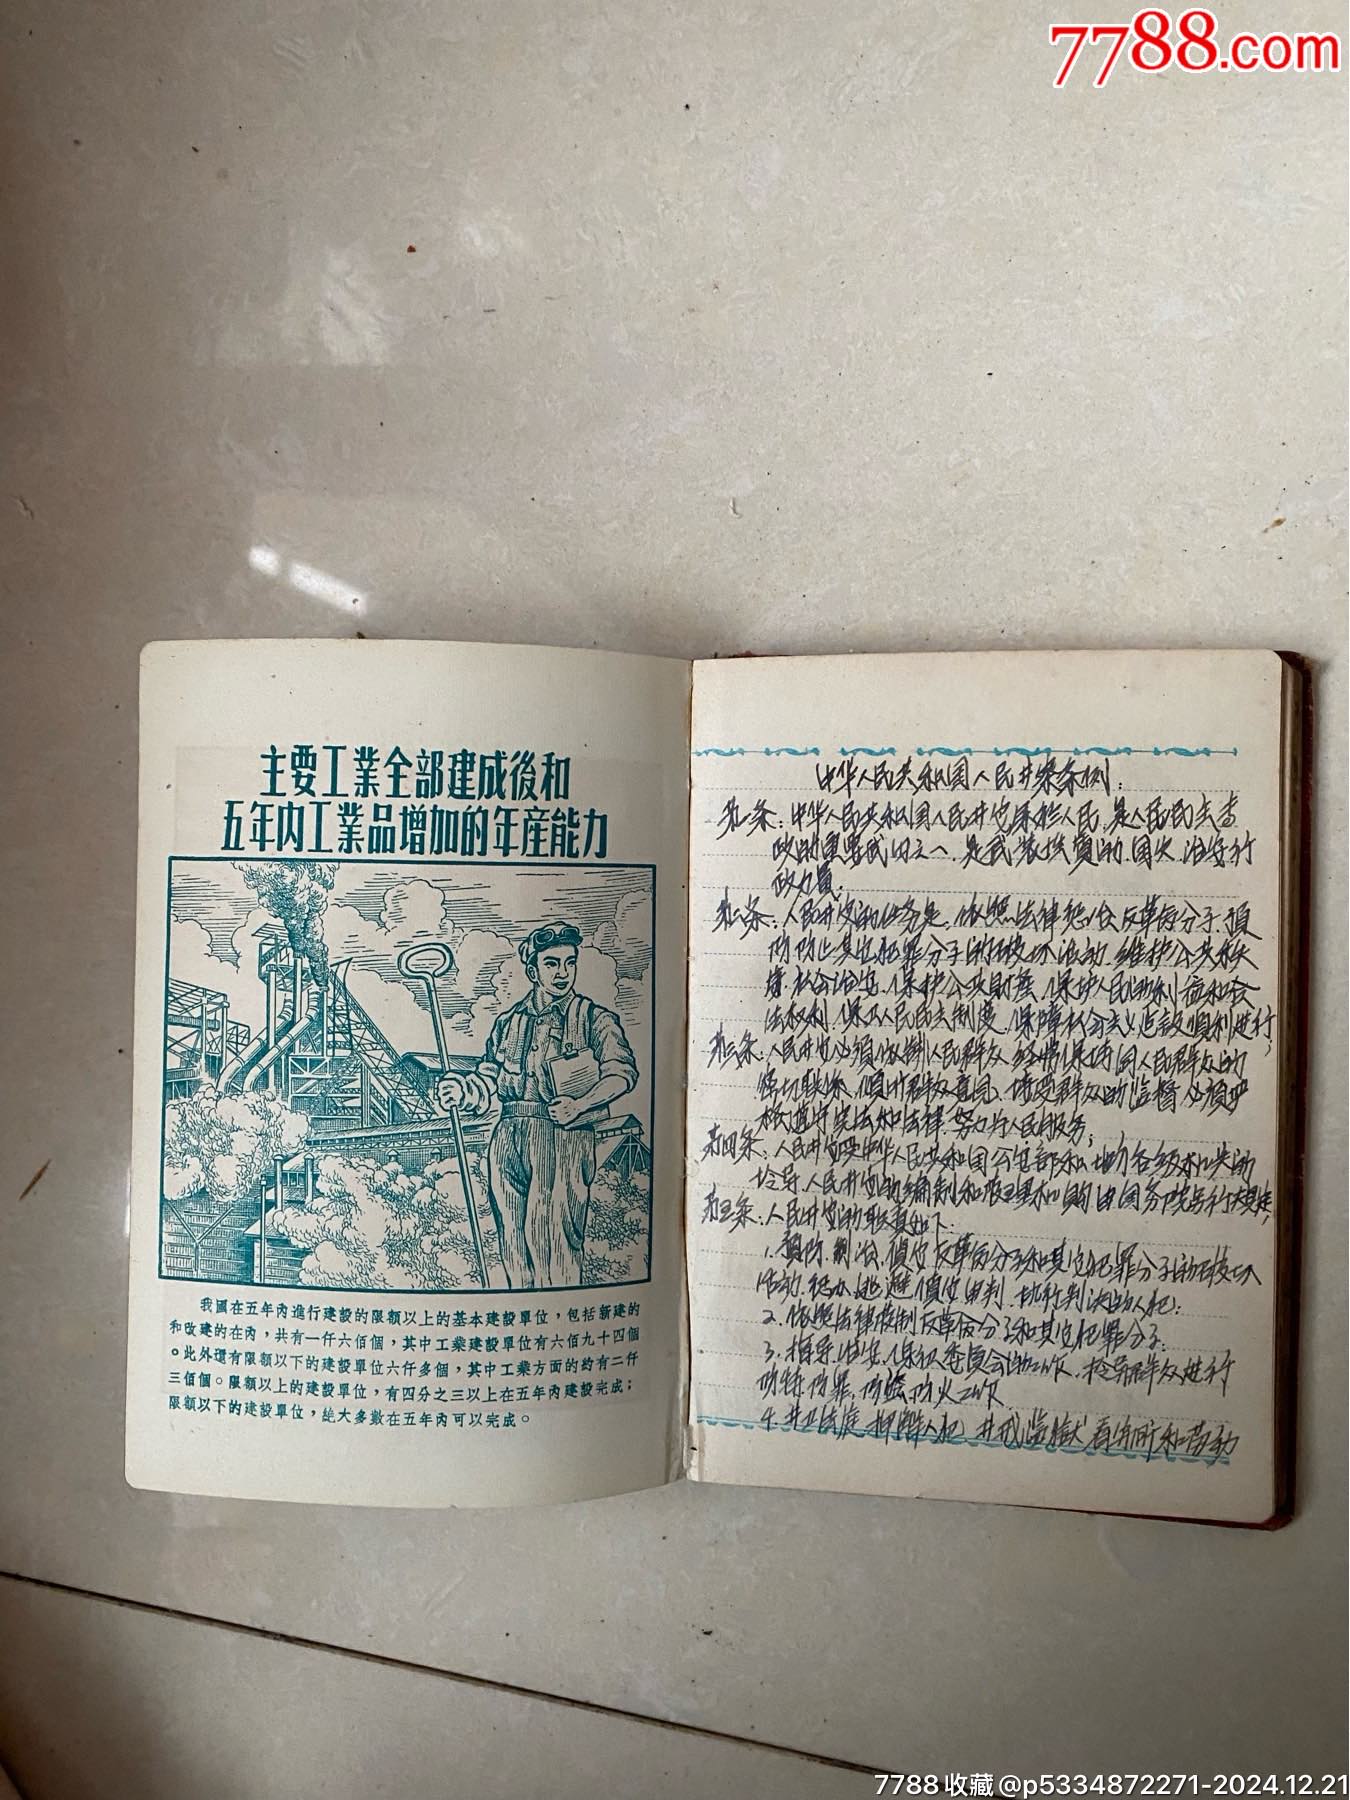 7788.com
主要工業全部建成後和
五年内工業品增加的年產能力
我國在五年內進行建設的限額以上的基本建設單位，包括新建的
和改建的在內，共有一仟六佰個，其中工業建設單位有六佰九十四個
。此外還有限額以下的建設單位六仟多個，其中工業方面的約有二仟
三佰個。限額以上的建設單位，有四分之三以上在五年內建設完成；
限額以下的建設單位，絕大多數在五年內可以完成。
中华人民共和国人民警察条例：
第一条：中华人民共和国人民警察属於人民，是人民民主专
政的重要武器之一，是武装性質的国家治安行
政力量。
第二条：人民警察的任务是，依照法律惩治反革命分子，預
防制止其他犯罪分子的破坏活动，维护公共秩
序，社会治安，保护公共財产，保护人民的利益和合
法权利，保卫人民民主制度，保障社会主义建設順利进行；
第三条：人民警察必須依靠人民群众，经常保持同人民群众的
密切联系，傾听群众意見，接受群众的监督，必須严
格遵守宪法和法律，努力为人民服务；
第四条：人民警察受中华人民共和国公安部和地方各级机关的
領导，人民警察的編制和管理机构由国务院另行規定；
第五条：人民警察的职責如下：
1. 預防、制治、偵察反革命分子和其他犯罪分子的破坏
活动，侦办逃避偵察审判、执行判决的人犯；
2. 依照法律管制反革命分子和其他犯罪分子；
3. 指导治安保卫委員会的工作，領导群众进行
防特、防罪、防盗、防火工作
4. 警卫法庭，押解人犯，警戒监獄、看守所和劳动
7788收藏@p5334872271-2024.12.21